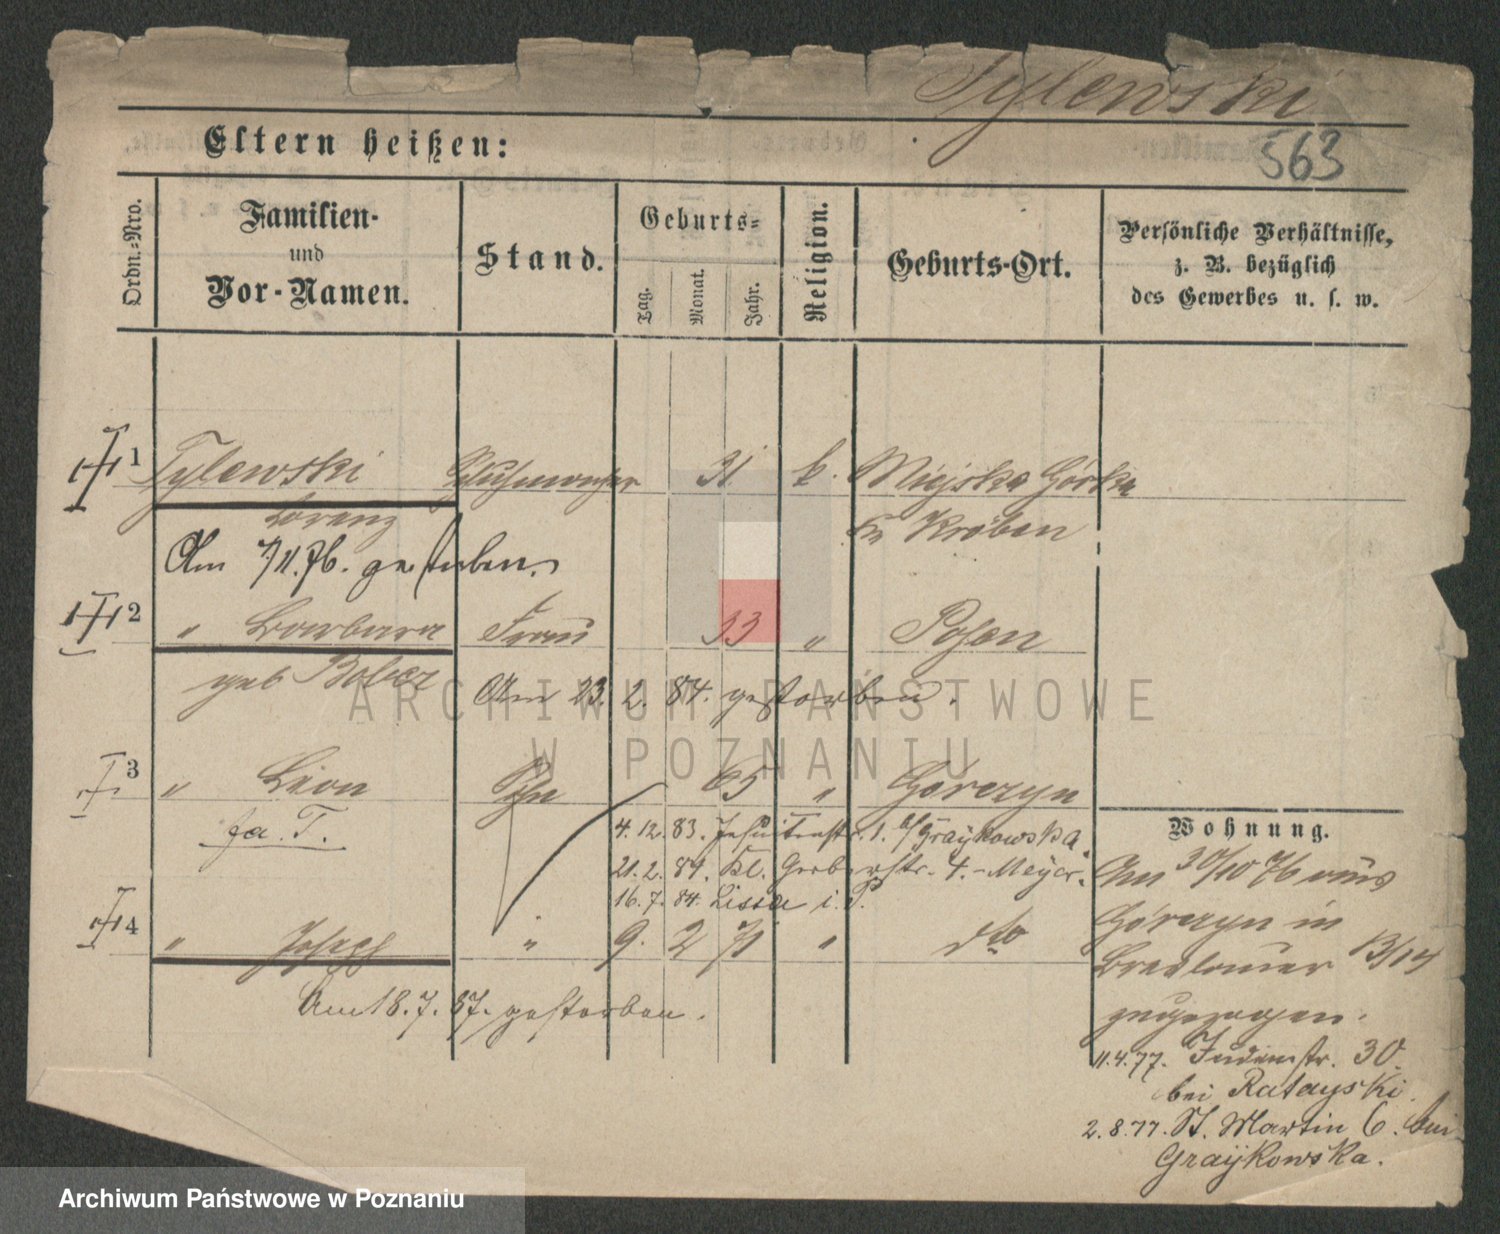 Tylewski
563
Eltern heißen:
Ordn.-Nro.
Familien-
und
Vor-Namen.
Stand.
Geburts-
Tag.
Monat.
Jahr.
Religion.
Geburts-Ort.
Persönliche Verhältnisse,
z. B. bezüglich
des Gewerbes u. s. w.
1 Tylewski 31 k. Miejska Górka
Lorenz Kr Kröben
Am 7/11.76. gestorben.
2 " Barbara Frau 33 " Posen
geb Am 23. 2. 84. gestorben.
3 " Leon Sohn 65 " Górczyn
fa. T.
4. 12. 83. Jesuitenstr. 1. b/ Grajkowska.
21. 2. 84. Kl. Gerberstr. 4. - Meyer.
16. 7. 84. Lissa i. P.
4 " Joseph " 9. 2 71 " dto
Am 18. 7. 87. gestorben.
Wohnung.
Am 30/10 76 aus
Górczyn in
Breslauer 13/14
zugezogen.
11. 4. 77. Judenstr. 30.
bei Ratayski.
2. 8. 77. St. Martin 6. bei
Grajkowska.
ARCHIWUM PAŃSTWOWE
W POZNANIU
Archiwum Państwowe w Poznaniu